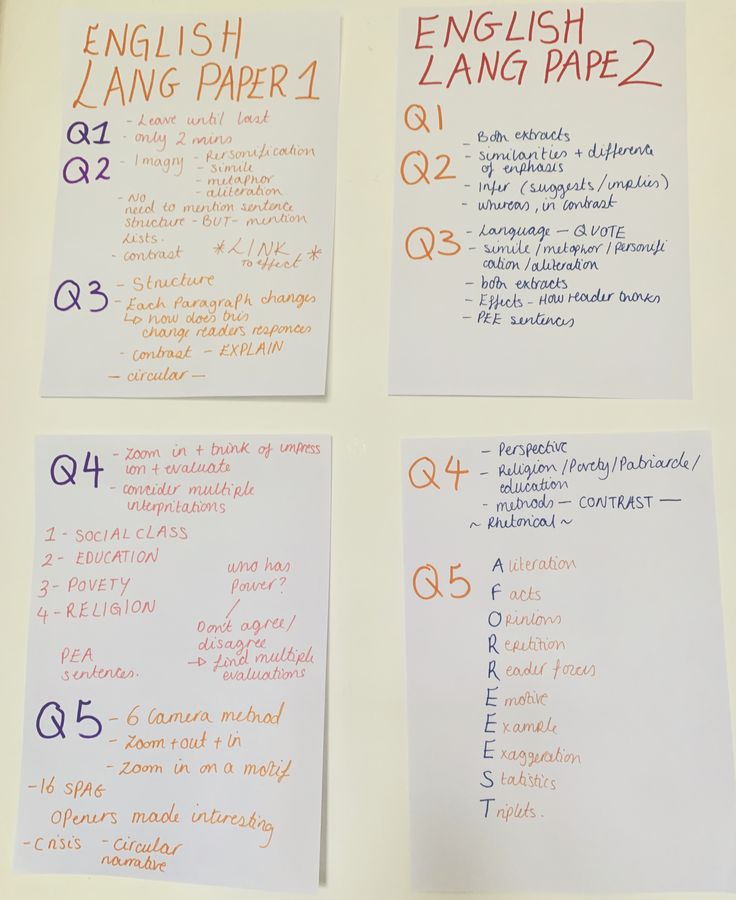 ENGLISH
LANG PAPER 1
Q1 - Leave until last
- only 2 mins
Q2 - Imagry - Personification
- simile
- metaphor
- aliteration
- No
need to mention sentence
structure - BUT - mention
Lists.
- contrast *LINK*
TO effect
Q3 - Structure
- Each Paragraph changes
↳ how does this
change readers responces
- contrast - EXPLAIN
- circular -
Q4 - Zoom in + think of impress
ion + evaluate
- consider multiple
interpritations
1 - SOCIAL CLASS
2 - EDUCATION
3 - POVETY
4 - RELIGION
who has
Power?
/
Don't agree/
disagree
→ find multiple
evaluations
PEA
sentences.
Q5 - 6 Camera method
- Zoom + out + in
- Zoom in on a motif
- 16 SPAG
Openers made interesting
- Crisis - circular
narrative
ENGLISH
LANG PAPE 2
Q1
Q2 - Both extracts
- Similarities + difference
of enphasis
- Infer (suggests/implies)
- whereas, in contrast
Q3 - Language - QUOTE
- simile/metaphor/personifi
cation/aliteration
- both extracts
- Effects - How reader thinks
- PEE sentences
Q4 - Perspective
- Religion/Povety/Patriarcle/
education
- methods - CONTRAST -
~ Rhetorical ~
Q5 Aliteration
Facts
Opinions
Repetition
Reader forces
Emotive
Example
Exaggeration
Statistics
Triplets.